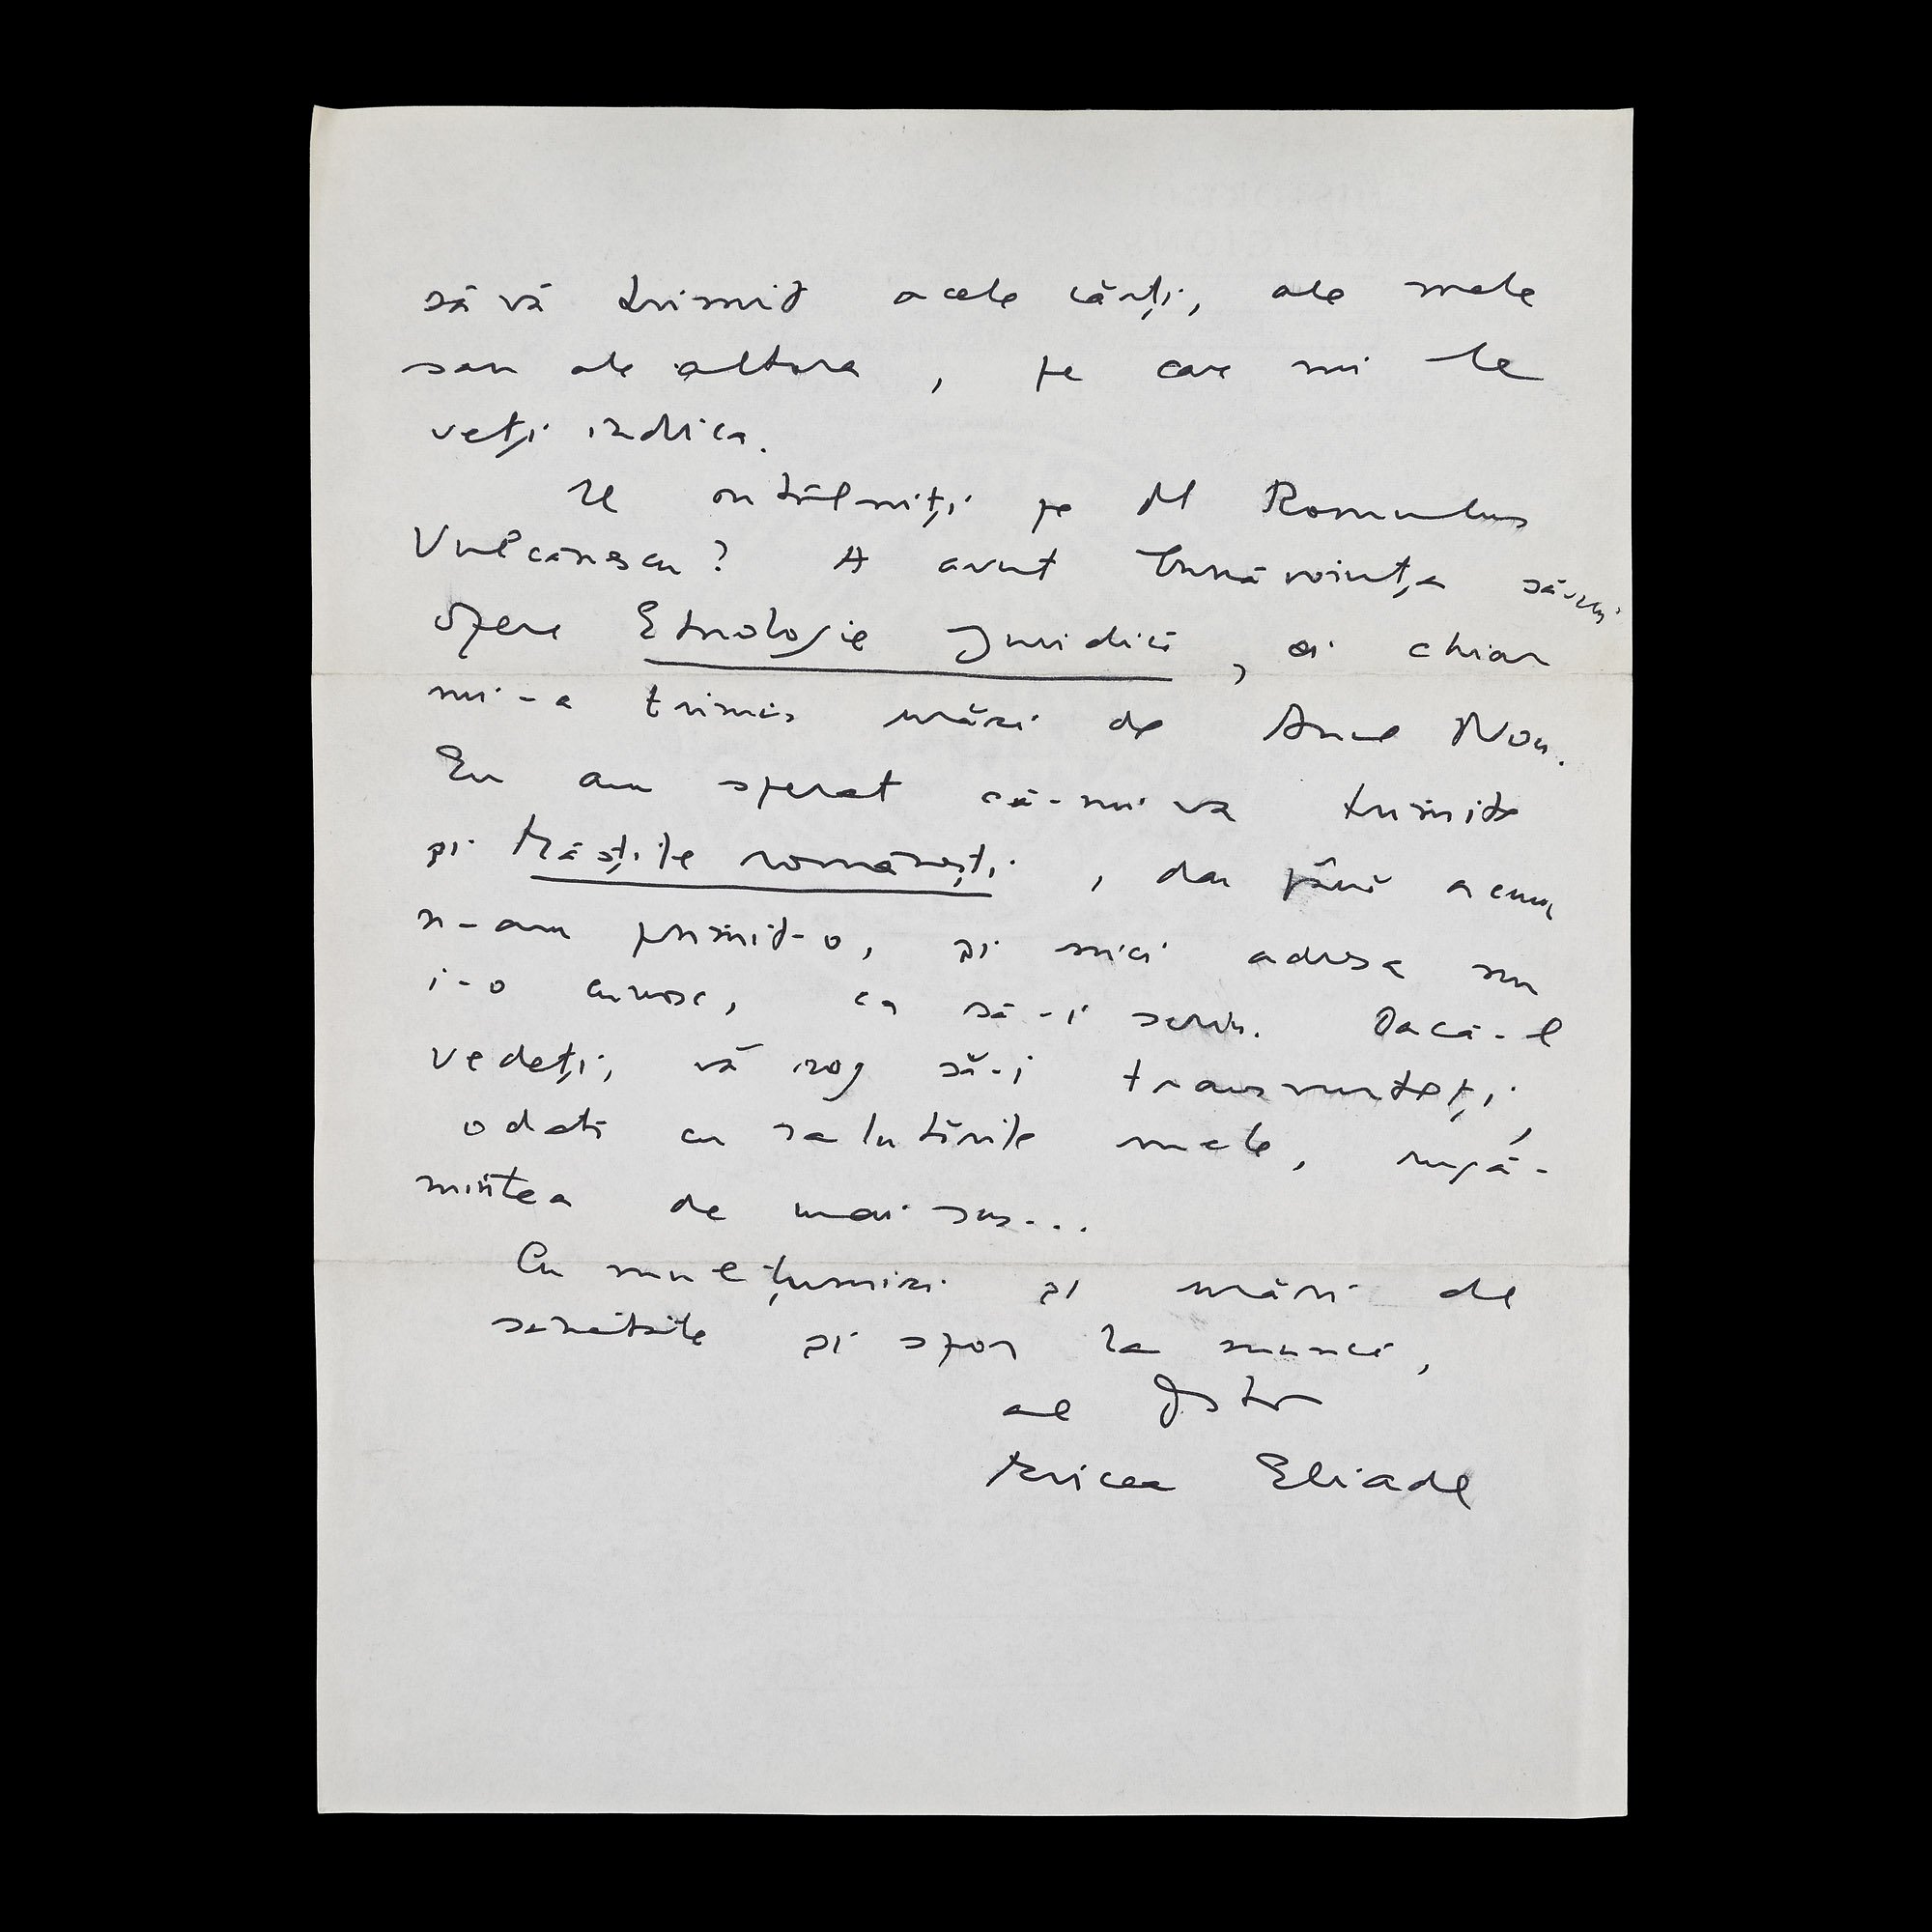 să vă trimit acele cărți, ale mele
sau ale altora, pe care mi le
veți indica.
Îl întâlniți pe Dl Romulus
Vulcănescu? A avut bunăvoința să-mi
ofere Etnologie Juridică, și chiar
mi-a trimis urări de Anul Nou.
Eu am sperat că-mi va trimite
și Măștile românești, dar până acum
n-am primit-o, și nici adresa nu
i-o cunosc, ca să-i scriu. Dacă-l
vedeți, vă rog să-i transmiteți,
odată cu salutările mele, rugă-
mintea de mai sus...
Cu mulțumiri și urări de
sănătate și spor la muncă,
al Dstr
Mircea Eliade